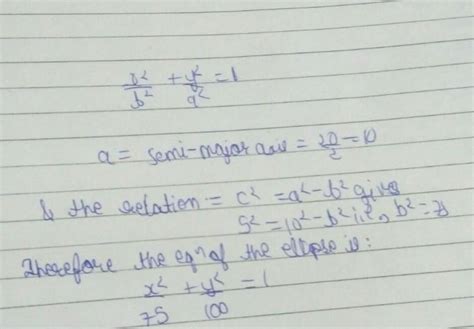 x²/b² + y²/a² = 1
a = semi-major axis = 20/2 = 10
& the relation = c² = a² - b² gives
5² = 10² - b² i.e., b² = 75
Therefore the eqⁿ of the ellipse is:
x²/75 + y²/100 = 1